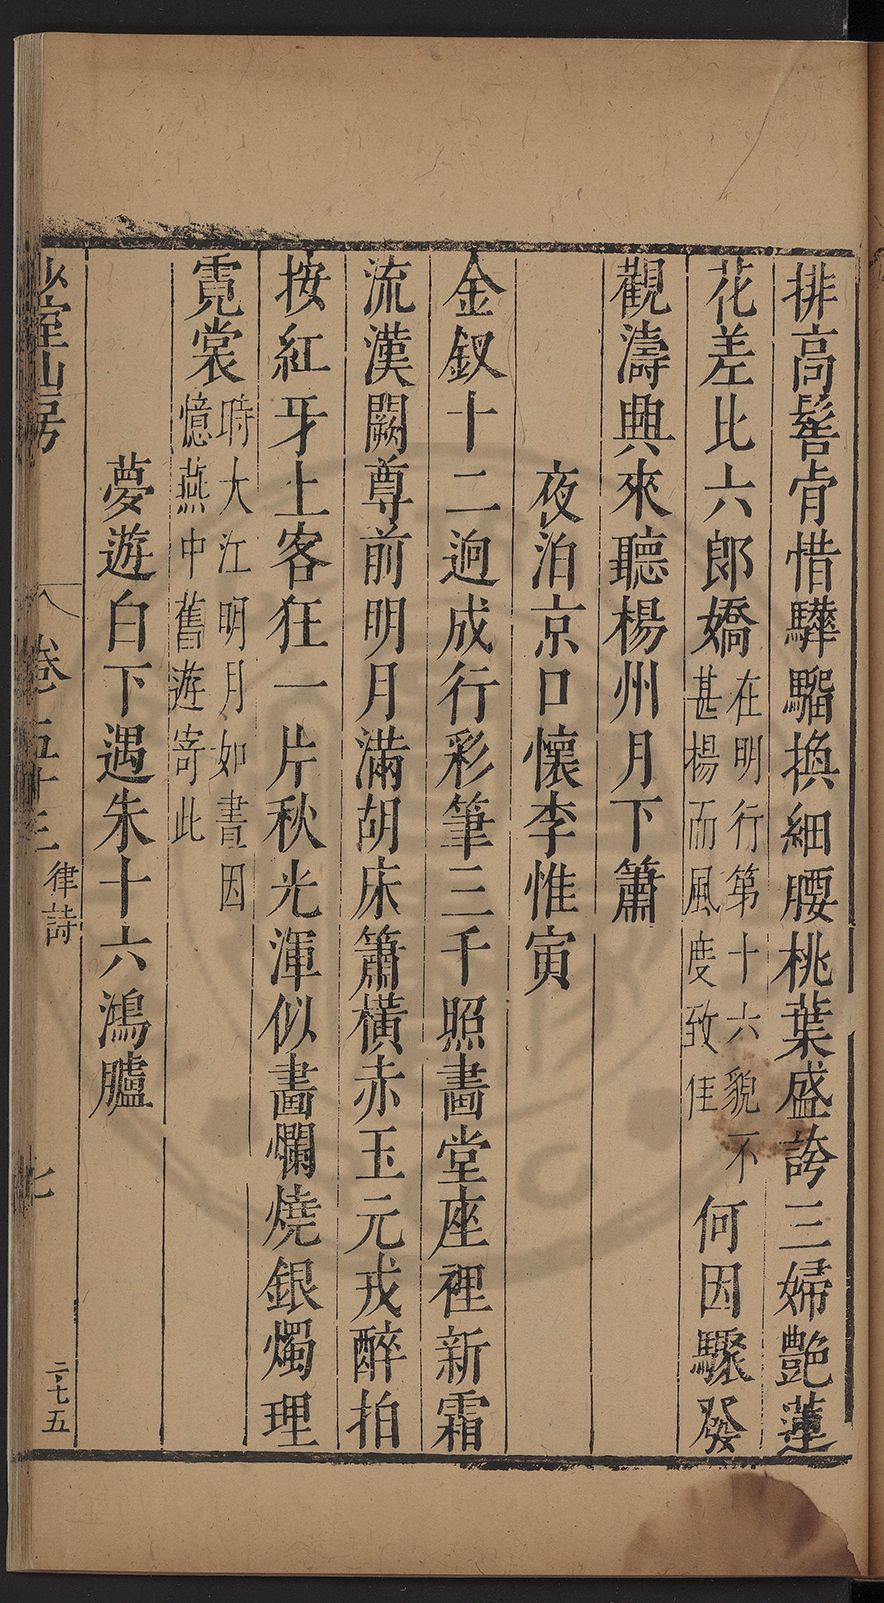 排高髻肯惜驊騮換細腰桃葉盛誇三婦艶蓮
花差比六郎嬌在明行第十六貌不甚楊而風度致佳何因驟發
觀濤興來聽楊州月下簫
夜泊京口懷李惟寅
金釵十二逈成行彩筆三千照畵堂座裡新霜
流漢闕尊前明月滿胡床簫橫赤玉元戎醉拍
按紅牙上客狂一片秋光渾似畵爛燒銀燭理
霓裳時大江明月如晝因憶燕中舊遊寄此
夢遊白下遇朱十六鴻臚
少室山房
卷五十三
律詩
七
二七五